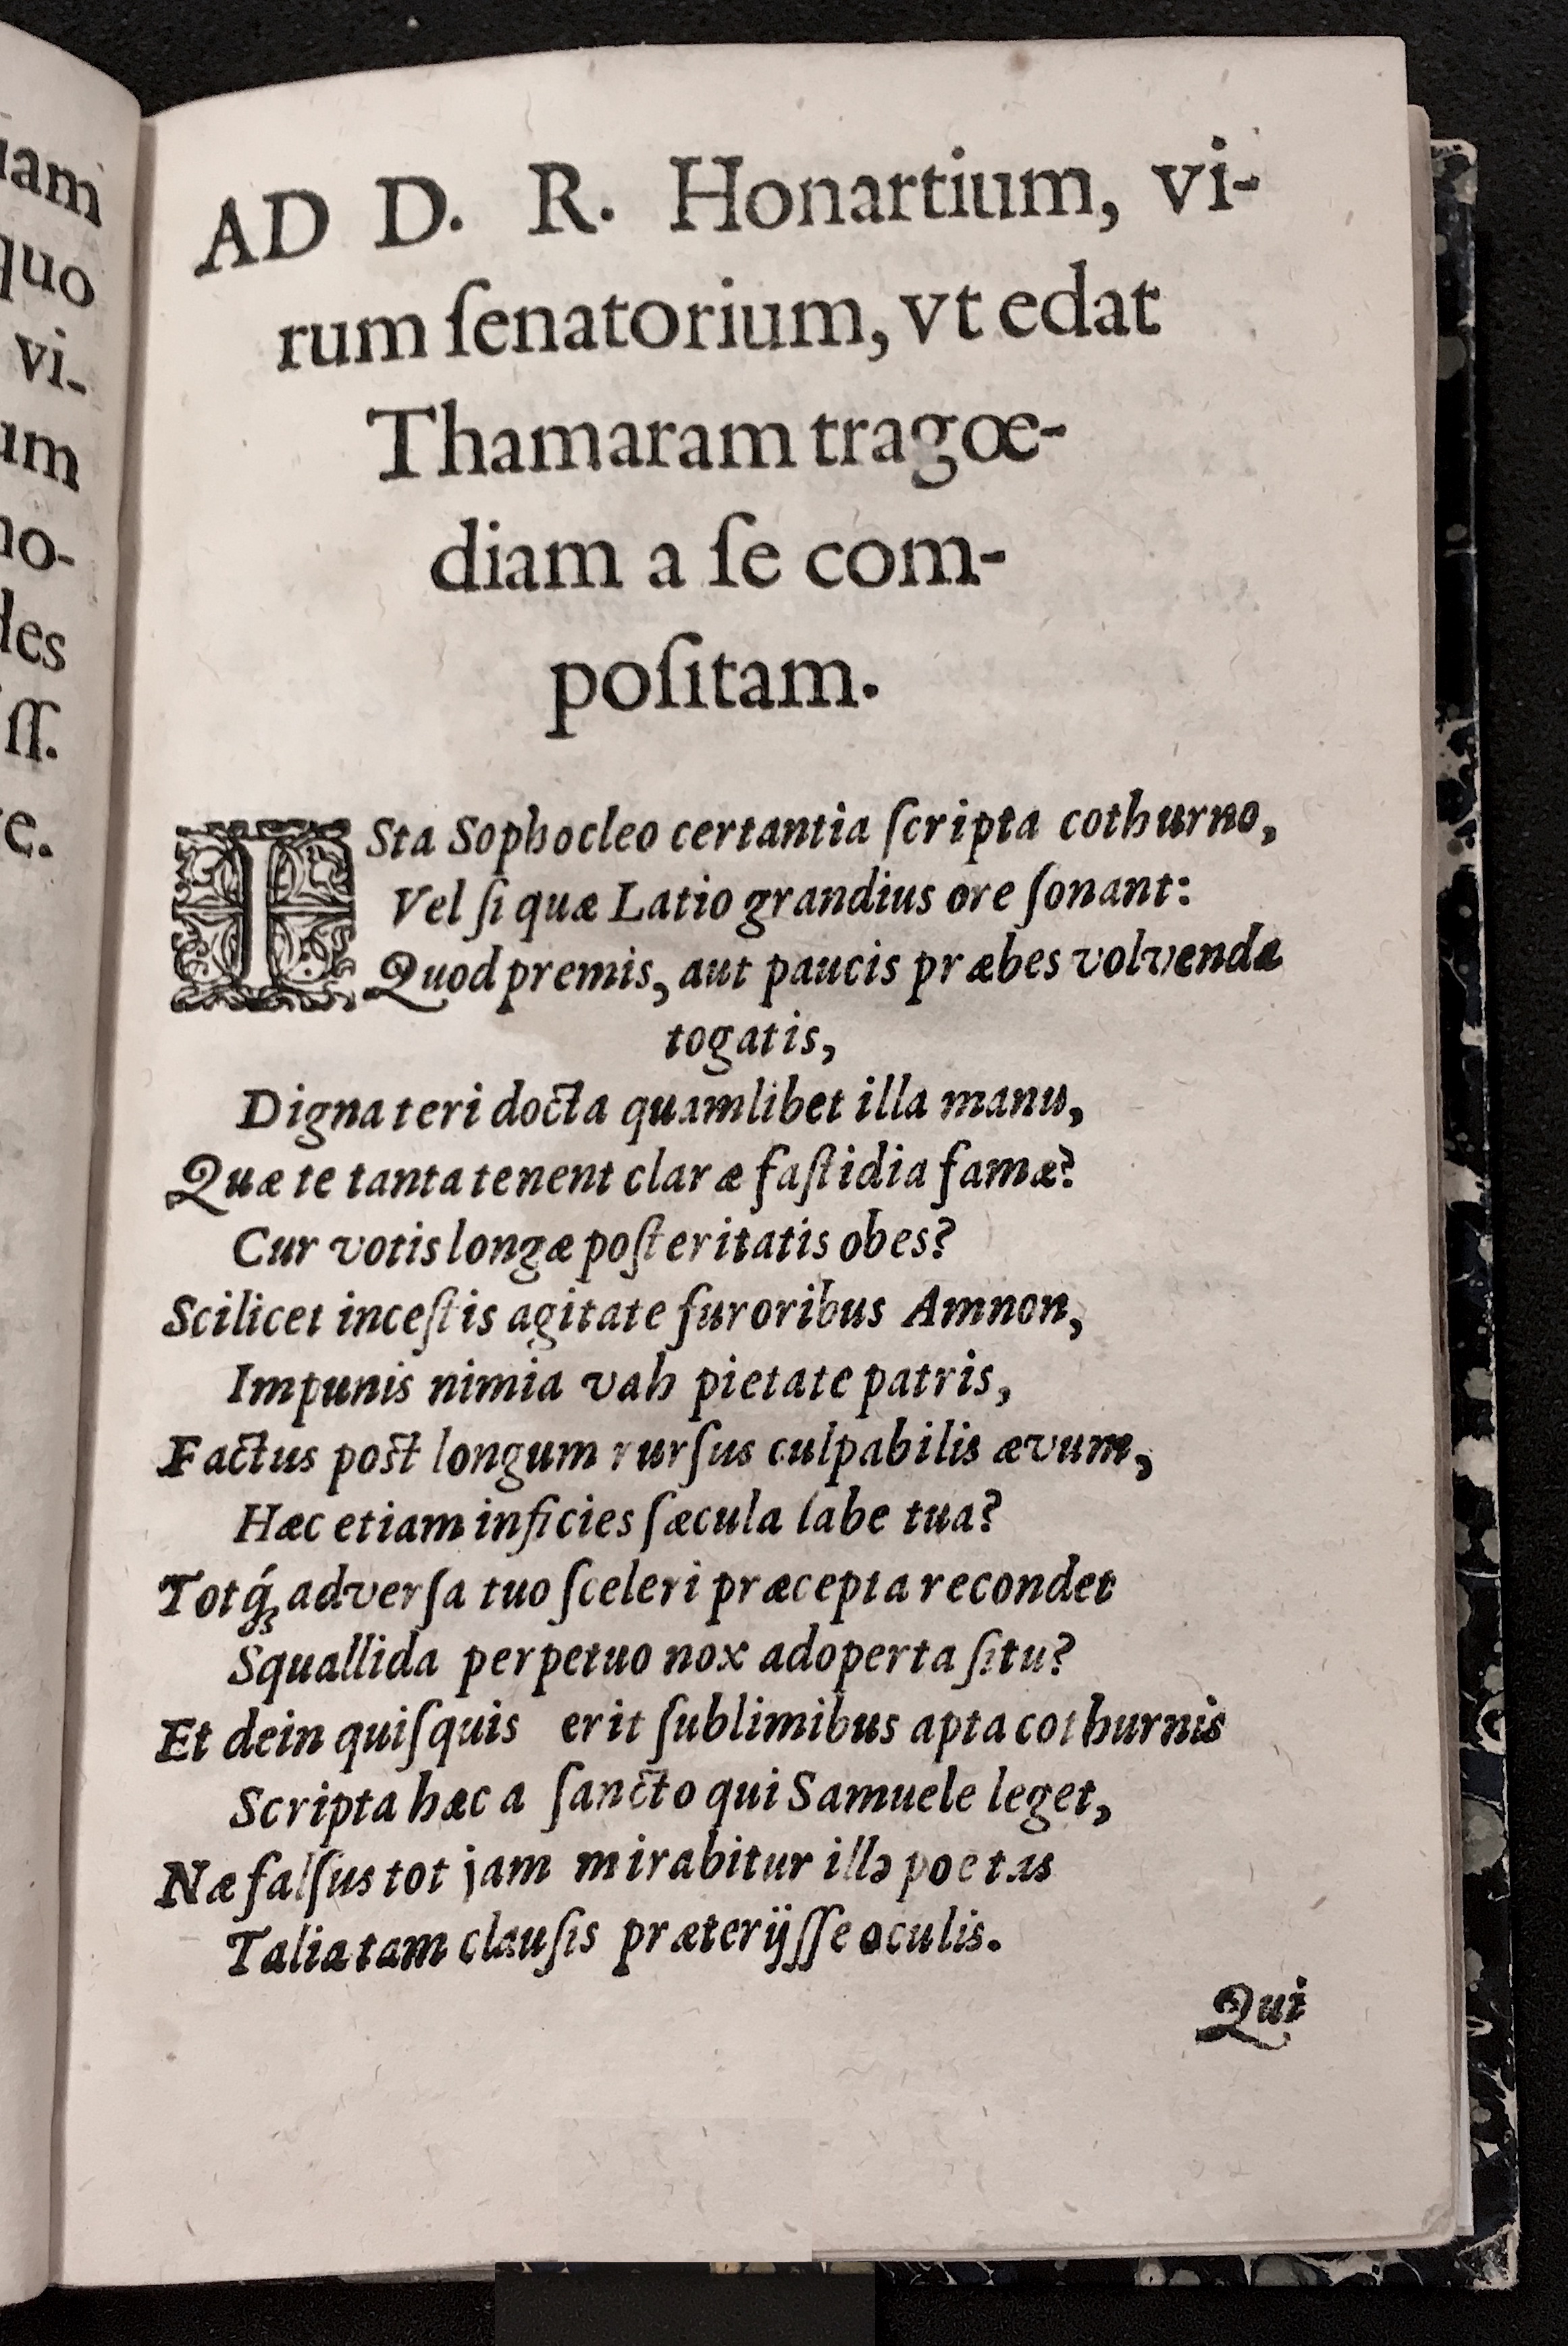 AD D. R. Honartium, vi-
rum ſenatorium, vt edat
Thamaram tragœ-
diam a ſe com-
poſitam.
ISta Sophocleo certantia ſcripta cothurno,
Vel ſi quæ Latio grandius ore ſonant:
Quod premis, aut paucis præbes volvenda
togatis,
Digna teri docta quamlibet illa manu,
Quæ te tanta tenent claræ faſtidia famæ?
Cur votis longæ poſteritatis obes?
Scilicet inceſtis agitate furoribus Amnon,
Impunis nimia vah pietate patris,
Factus poſt longum rurſus culpabilis ævum,
Hæc etiam inficies ſæcula labe tua?
Totq́ꝫ adverſa tuo ſceleri præcepta recondet
Squallida perpetuo nox adoperta ſitu?
Et dein quiſquis erit ſublimibus apta cothurnis
Scripta hæc a ſancto qui Samuele leget,
Næ falſus tot jam mirabitur ille poetas
Talia tam clauſis præterijſſe oculis.
Qui
iam
quo
vi-
um
no-
des
iſſ.
re.